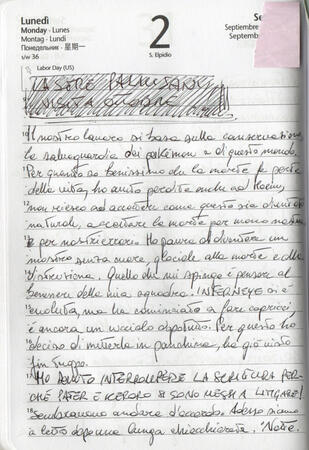 Lunedì
Monday - Lunes
Montag - Lundi
Понедельник - 星期一
s/w 36
2
S. Elpidio
Se
Septiembre
Septemb
Labor Day (US)
Il nostro lavoro si basa sulla conservazione,
la salvaguardia dei pokémon e di questo mondo.
Per quanto so benissimo che la morte fa parte
della vita, ho avuto perdite anche ad Hoenn,
non riesco ad accettare come questo sia diventato
naturale, accettare la morte per mano nostra
e per nostri errori. Ho paura di diventare un
mostro senza cuore, glaciale alla morte e alla
distruzione. Quello che mi spinge è pensare al
benessere della mia squadra. INTERNEYE si è
evoluta, ma ha cominciato a fare capricci,
è ancora un uccello dopotutto. Per questo ho
deciso di metterla in panchina, ha già visto
fin troppo.
HO AVUTO INTERROMPERE LA SCRITTURA PER-
CHÉ PATER E SI SONO MESSI A LITIGARE!
Sembravano andare d'accordo. Adesso siamo
a letto dopo una lunga chiacchierata. Notte.
10
11
12
13
14
15
16
17
18